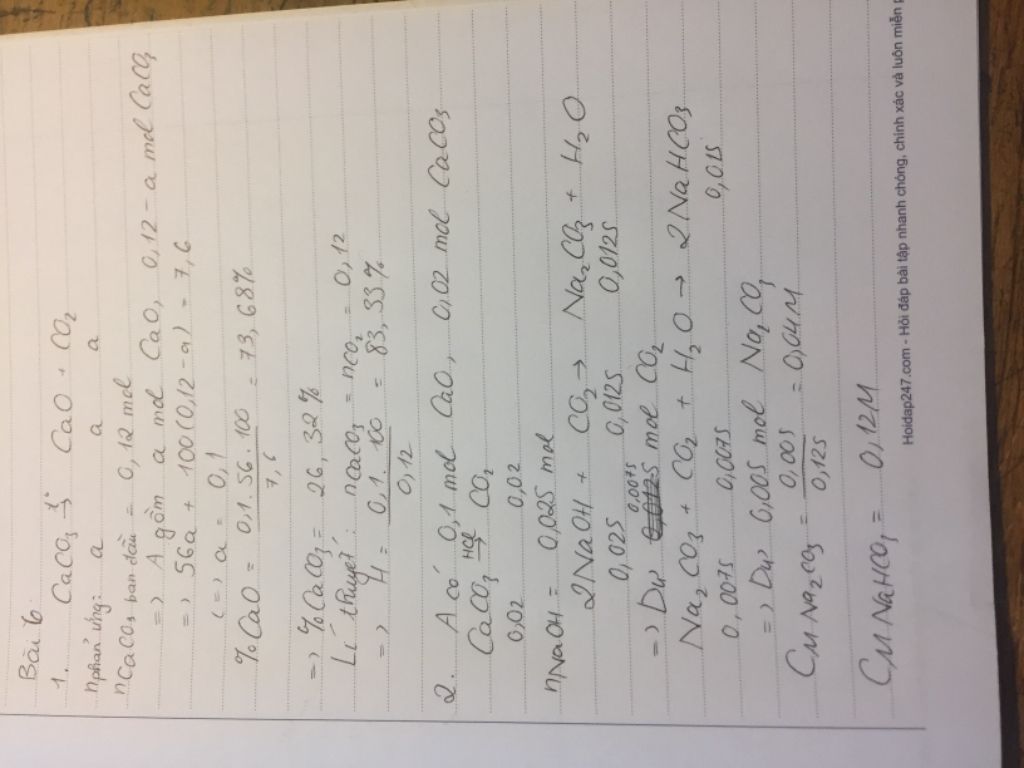 Bài 6.
1. CaCO3 →t° CaO + CO2
nphản ứng: a a a
nCaCO3 ban đầu = 0,12 mol
=> A gồm a mol CaO, 0,12 - a mol CaCO3
=> 56a + 100(0,12-a) = 7,6
<=> a = 0,1
%CaO = 0,1.56.100 / 7,6 = 73,68%
=> %CaCO3 = 26,32%
Lí thuyết: nCaCO3 = nCO2 = 0,12
=> H = 0,1.100 / 0,12 = 83,33%
2. A có 0,1 mol CaO, 0,02 mol CaCO3
CaCO3 →HCl CO2
0,02 0,02
nNaOH = 0,025 mol
2NaOH + CO2 → Na2CO3 + H2O
0,025 0,0125 0,0125
=> Dư 0,0075 mol CO2
Na2CO3 + CO2 + H2O → 2NaHCO3
0,0075 0,0075 0,015
=> Dư 0,005 mol Na2CO3
CM Na2CO3 = 0,005 / 0,125 = 0,04M
CM NaHCO3 = 0,12M
Hoidap247.com - Hỏi đáp bài tập nhanh chóng, chính xác và luôn miễn